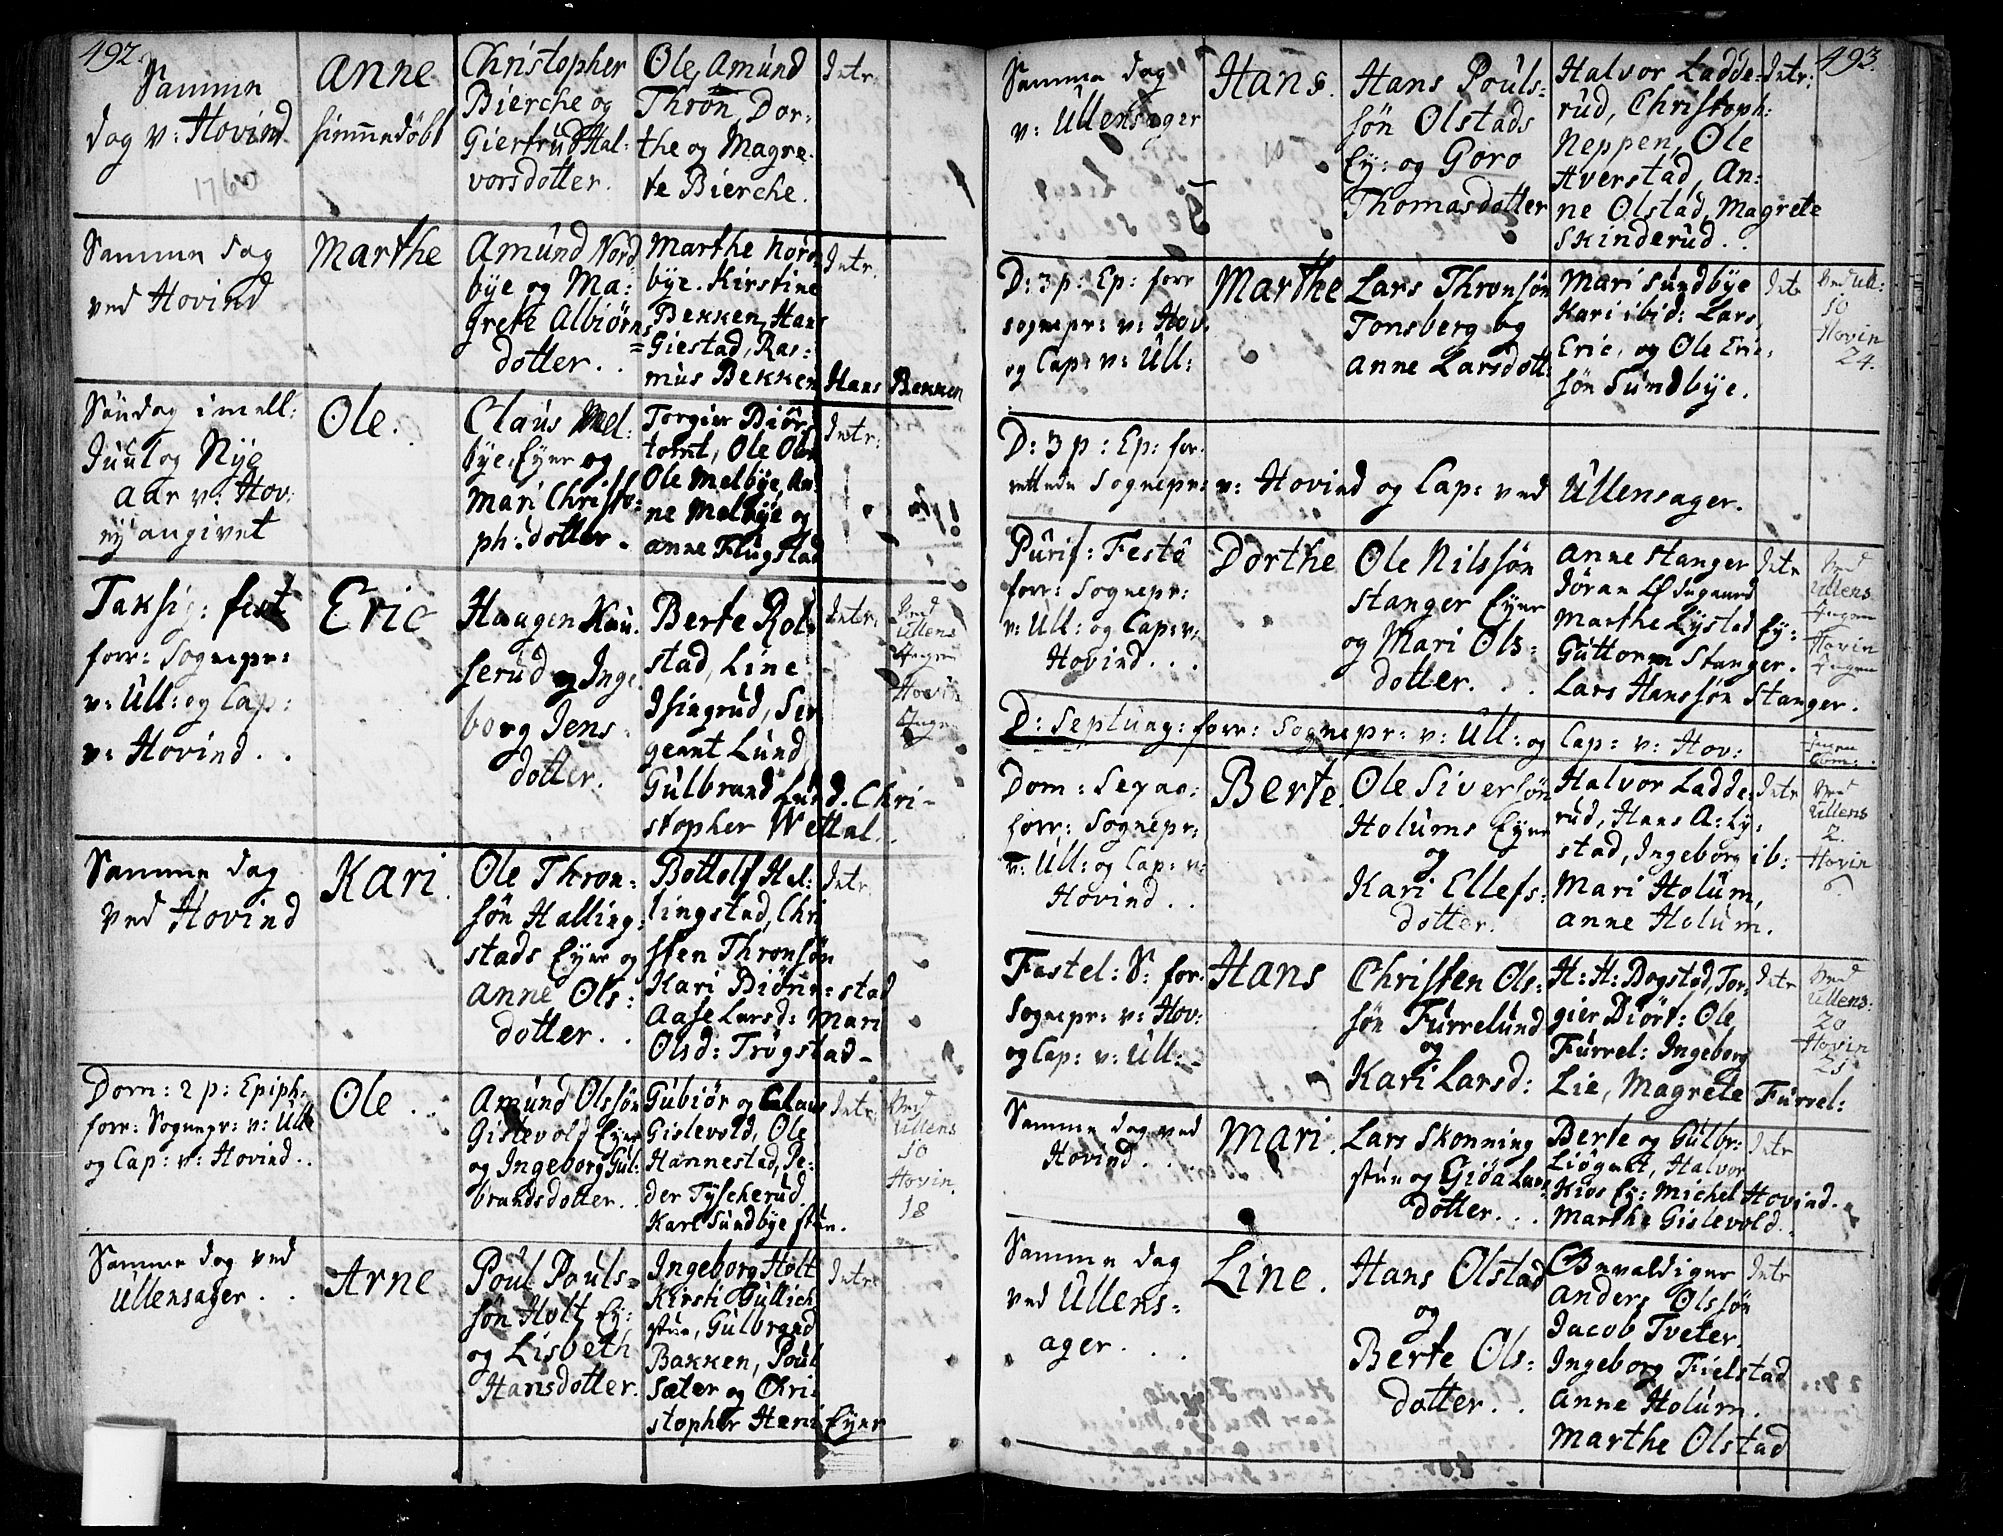 492.
Samme
dag v: Hovind
1760
Anne
hiemmedöbt
Christopher
Bierche og
Giertrud Hal-
vorsdotter.
Ole, Amund
Thron, Dor-
the og Magre-
te Bierche.
Intr.
Samme dag
ved Hovind
Marthe
Amund Nord-
bye og Ma-
grete Albiörns
dotter.
Marthe Nord-
bye. Kirstine
Bekken, Hans
Giestad, Ras-
mus Bekken
Hans Bekken
Intr.
Söndag imell:
Juul og Nye
aar v: Hov:
ey angivet
Ole.
Claus Mel-
bye Eyer og
Mari Christo-
ph: dotter.
Torgier Diör-
tomt, Ole
Ole Melbye, An-
ne Melbye og
Anne Flugstad
Intr:
Taksig: fest
forr: Sognepr:
v: Ull: og Cap:
v: Hovind.
Eric
Haagen Kau-
serud og Inge-
borg Jens
dotter.
Berte Rol-
stad, Line
Isingrud, Ser-
geant Lund,
Gulbrand Lund. Chri-
stopher Wettal.
Intr.
Ved
Ullens
Ingen
Hovin
Ingen
Samme dag
ved Hovind
Kari.
Ole Thron-
sön Halling-
stads Eyer og
Anne Ols-
dotter.
Bottolf Hal-
lingstad, Chri
sten Thronsön
Kari Biörnestad
Aase Larsd: Mari
Olsd: Trögstad-
Intr.
Dom: 2 p: Epiph:
forr: Sognepr: v: Ull:
og Cap: v: Hovind.
Ole.
Amund Olssön
Gislevold Eyer
og Ingeborg Gul-
brandsdotter.
Gubiör og Claus
Gislevold, Ole
Hannestad, Pe-
der Tyscherud
Karl Sundbye stue.
Intr.
Ved
Ullens
10
Hovin.
18
Samme dag ved
Ullensager.
Arne
Poul Pouls-
sön Holt Ey:
og Lisbeth
Hansdotter.
Ingeborg Holt
Kirsti Gullich
stue, Gulbrand
Bakken, Poul
Sæter og Chri-
stopher Hæni Eyer
Intr.
493.
Samme dag
v: Ullensager
Hans.
Hans Pouls-
sön Olstads
Ey: og Goro
Thomasdotter
Halvor Ladde-
rud, Christoph:
Neppen, Ole
Averstad, An-
ne Olstad, Magrete
Skinderud.
Intr:
D: 3 p: Ep: forr
sognepr: v: Hov.
og Cap: v: Ull:
Marthe
Lars Thronsön
Tonsberg og
Anne Larsdott:
Mari Sundbye
Kari ibid: Lars,
Eric, og Ole Eric-
sön Sundbye.
Intr
Ved Ull:
10
Hovin
24.
D: 3 p: Ep: for-
rettede Sognepr: v: Hovind og Cap: ved Ullensager.
Purif: Festo
forr: Sognepr:
v: Ull: og Cap: v:
Hovind.
Dorthe
Ole Nilssön
Stanger Eyer
og Mari Ols-
dotter.
Anne Stanger
Jöran
Marthe Lystad Ey:
Guttorm Stanger.
Lars Hanssön Stanger.
Intr
Ved
Ullens
Ingen
Hovin
Ingen
D: Septuag: forr: Sognepr: v: Ull: og Cap: v: Hov:
Ingen
Com:
Dom: Sexag:
forr: Sognepr:
v: Ull: og Cap: v:
Hovind.
Berte.
Ole Siversön
Holums Eyer
og
Kari Ellefs-
dotter.
Halvor Ladde-
rud, Hans A: Ly-
stad, Ingeborg ib:
Mari Holum,
Anne Holum.
Intr
Ved
Ullens
2
Hovin
6.
Fastel: S: for-
Sognepr: v: Hov:
og Cap: v: Ull:
Hans
Christen Ols-
sön Furrelund
og
Kari Larsd:
H: H: Dogstad, Tor-
gier Diört: Ole
Furrel: Ingeborg
Lie, Magrete Furrel:
Intr
Ved
Ullens.
20
Hovin
25
Samme dag ved
Hovind.
Mari.
Lars Skonning
stue og Giöa Lars
dotter.
Berte og Gulbr:
Liögut, Halvor
Kios Ey: Michel Hovind.
Marthe Gislevold.
Intr
Samme dag
ved Ullens-
ager.
Line.
Hans Olstad
og
Berte Ols-
dotter.
Gievaldiger
Anders Olssön
Jacob Tveter.
Ingeborg Fielstad
Anne Holum.
Marthe Olstad
Intr